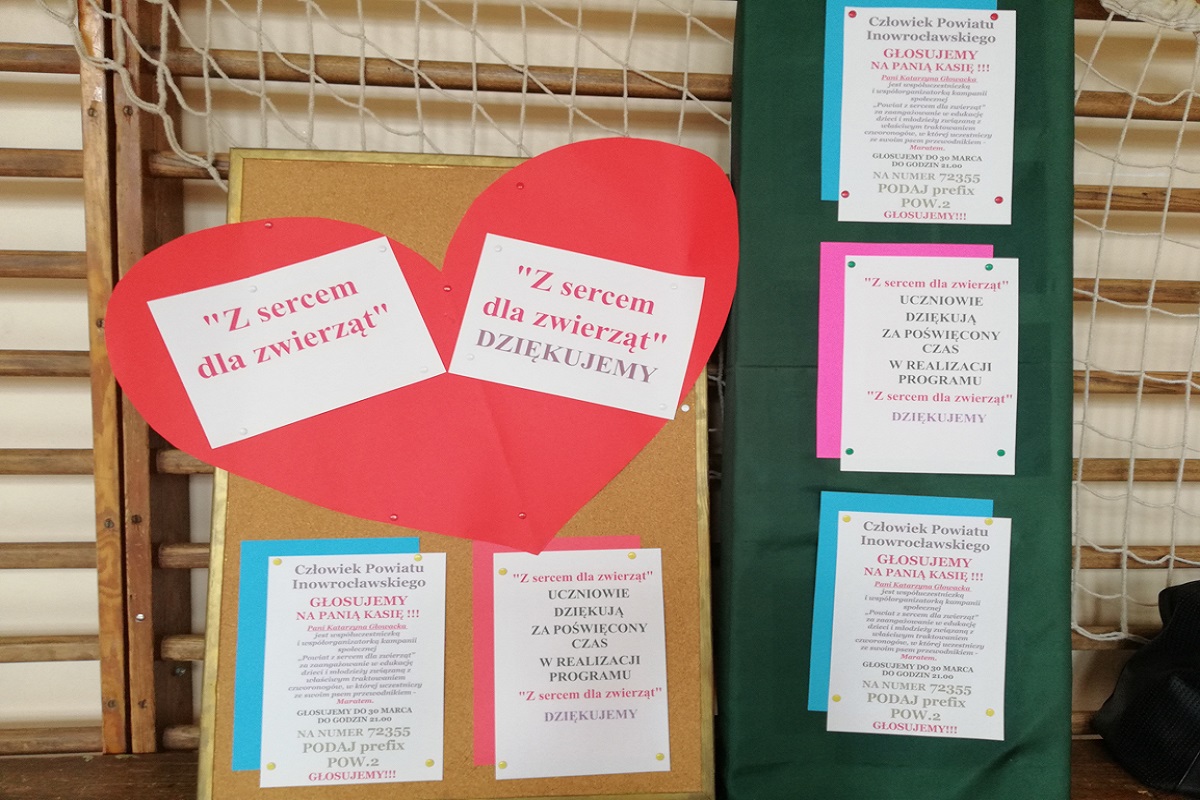 "Z sercem
dla zwierząt"
"Z sercem
dla zwierząt"
DZIĘKUJEMY
Człowiek Powiatu
Inowrocławskiego
GŁOSUJEMY
NA PANIĄ KASIĘ !!!
Pani Katarzyna Głowacka
jest współuczestniczką
i współorganizatorką kampanii
społecznej
„Powiat z sercem dla zwierząt"
za zaangażowanie w edukację
dzieci i młodzieży związaną z
właściwym traktowaniem
czworonogów, w której uczestniczy
ze swoim psem przewodnikiem -
Maratem.
GŁOSUJEMY DO 30 MARCA
DO GODZIN 21.00
NA NUMER 72355
PODAJ prefix
POW.2
GŁOSUJEMY!!!
"Z sercem dla zwierząt"
UCZNIOWIE
DZIĘKUJĄ
ZA POŚWIĘCONY
CZAS
W REALIZACJI
PROGRAMU
"Z sercem dla zwierząt"
DZIĘKUJEMY
Człowiek Powiatu
Inowrocławskiego
GŁOSUJEMY
NA PANIĄ KASIĘ !!!
Pani Katarzyna Głowacka
jest współuczestniczką
i współorganizatorką kampanii
społecznej
„Powiat z sercem dla zwierząt"
za zaangażowanie w edukację
dzieci i młodzieży związaną z
właściwym traktowaniem
czworonogów, w której uczestniczy
ze swoim psem przewodnikiem -
Maratem.
GŁOSUJEMY DO 30 MARCA
DO GODZIN 21.00
NA NUMER 72355
PODAJ prefix
POW.2
GŁOSUJEMY!!!
"Z sercem dla zwierząt"
UCZNIOWIE
DZIĘKUJĄ
ZA POŚWIĘCONY
CZAS
W REALIZACJI
PROGRAMU
"Z sercem dla zwierząt"
DZIĘKUJEMY
Człowiek Powiatu
Inowrocławskiego
GŁOSUJEMY
NA PANIĄ KASIĘ !!!
Pani Katarzyna Głowacka
jest współuczestniczką
i współorganizatorką kampanii
społecznej
„Powiat z sercem dla zwierząt"
za zaangażowanie w edukację
dzieci i młodzieży związaną z
właściwym traktowaniem
czworonogów, w której uczestniczy
ze swoim psem przewodnikiem -
Maratem.
GŁOSUJEMY DO 30 MARCA
DO GODZIN 21.00
NA NUMER 72355
PODAJ prefix
POW.2
GŁOSUJEMY!!!